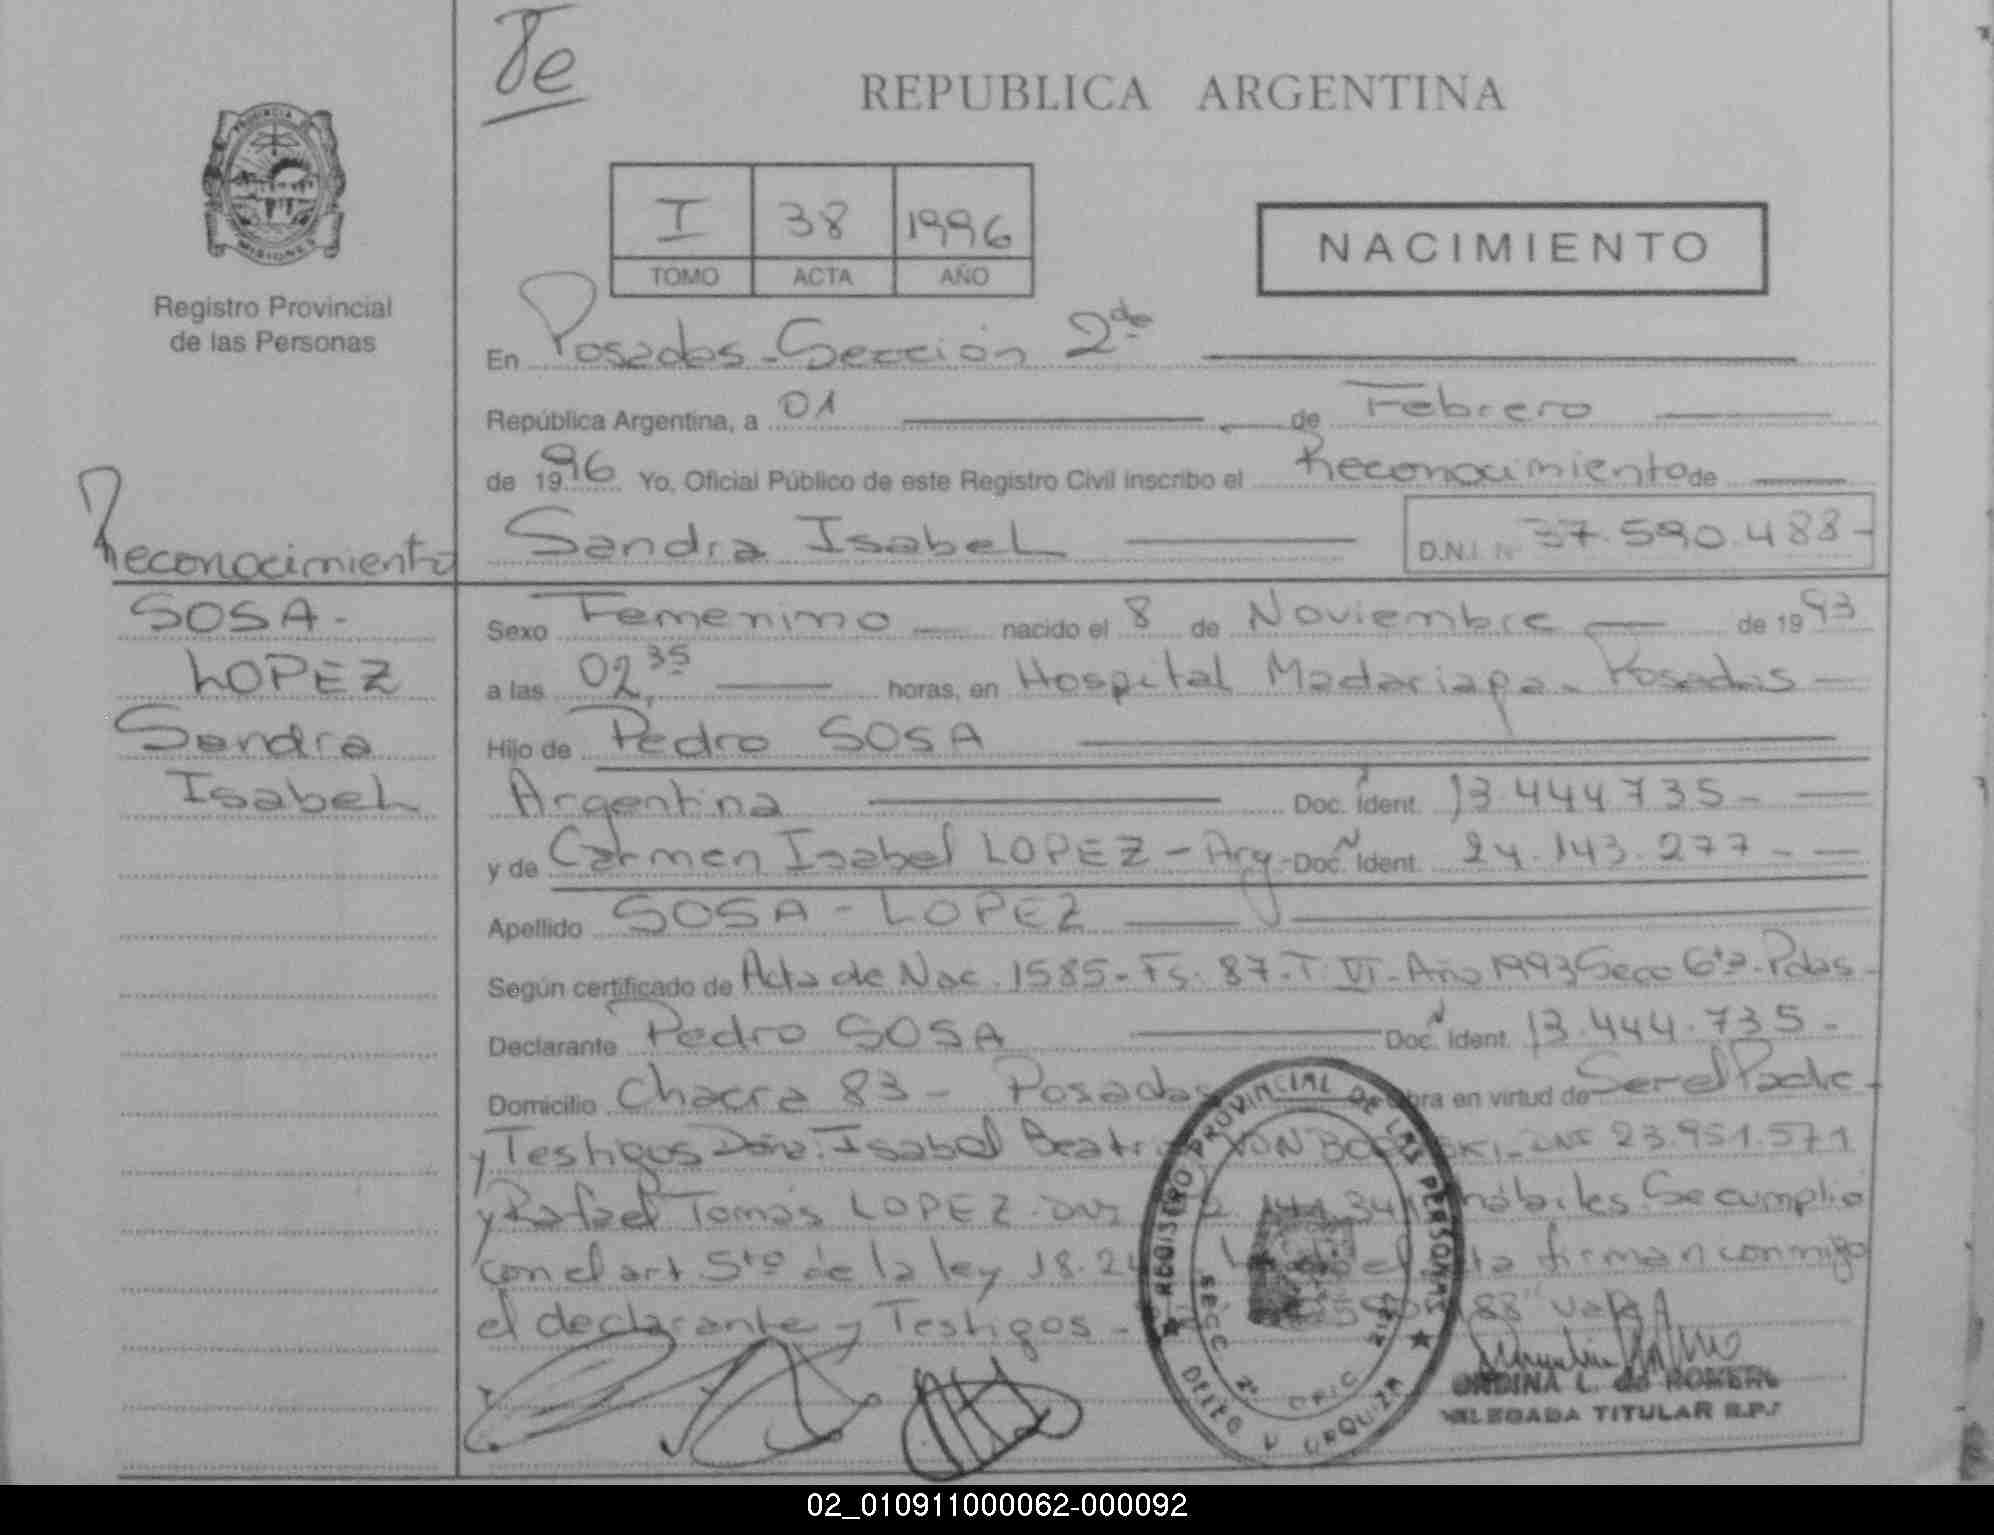 Te
REPUBLICA ARGENTINA
PROVINCIA
MISIONES
Registro Provincial
de las Personas
I 38 1996
TOMO ACTA AÑO
NACIMIENTO
En Posadas - Sección 2da
República Argentina, a 01 de Febrero
de 1996 Yo, Oficial Público de este Registro Civil inscribo el Reconocimiento de
Sandra Isabel D.N.I. Nº 37.590.488-
Reconocimiento
SOSA -
LOPEZ
Sandra
Isabel
Sexo Femenino nacido el 8 de Noviembre de 1993
a las 02,35 horas, en Hospital Madariaga - Posadas
Hijo de Pedro SOSA
Argentina Doc. Ident. 13.444.735-
y de Carmen Isabel LOPEZ - Arg- Doc. Ident. 24.143.277-
Apellido SOSA - LOPEZ
Según certificado de Acta de Nac. 1585- Fs. 87- T. VI- Año 1993 Secc 6ta- Pdas-
Declarante Pedro SOSA Doc. Ident. 13.444.735-
Domicilio Chacra 83 - Posadas obra en virtud de Ser el Padre-
y Testigos Doña: Isabel Beatriz VON DNI 23.951.571
y Rafael Tomás LOPEZ. DNI hábiles. Se cumplió
con el art 5to de la ley 18.24 firman conmigo
el declarante y Testigos - 88" vale
REGISTRO PROVINCIAL DE LAS PERSONAS
SECC. 2ª
DPTO
URQUIZA
ONDINA L. de ROMERO
DELEGADA TITULAR R.P.
02_010911000062-000092